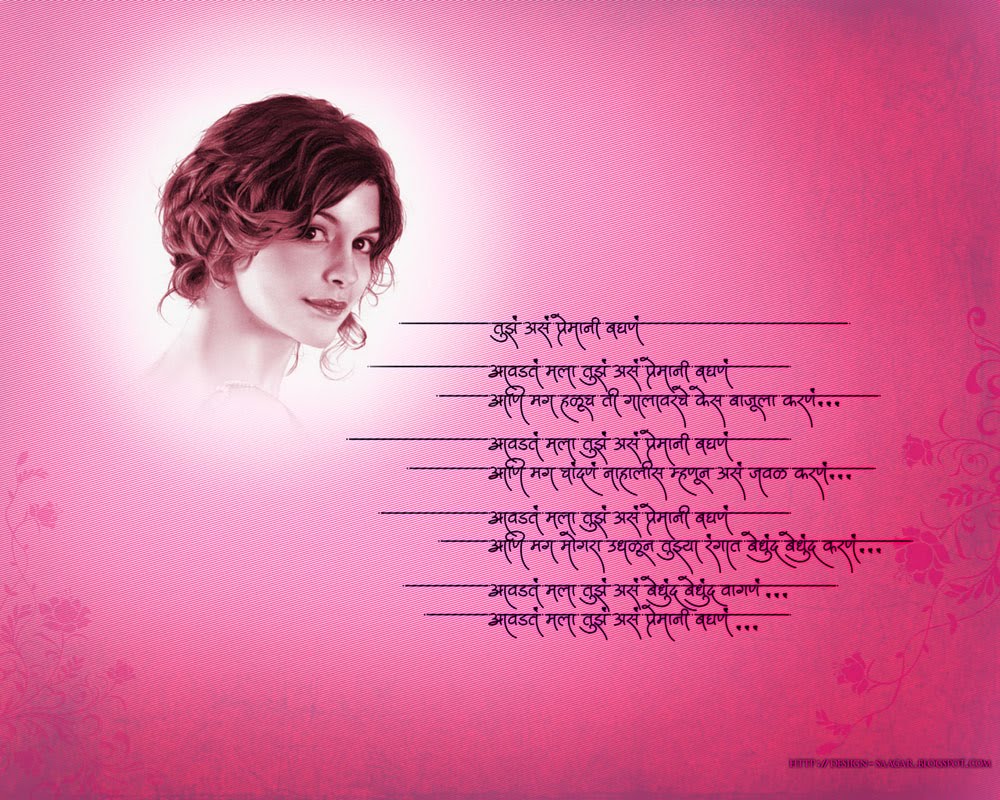 तुझं असं प्रेमानी बघणं
आवडतं मला तुझं असं प्रेमानी बघणं
आणि मग हळूच ती गालावरचे केस बाजूला करणं...
आवडतं मला तुझं असं प्रेमानी बघणं
आणि मग चांदणं नाहालीस म्हणून असं जवळ करणं...
आवडतं मला तुझं असं प्रेमानी बघणं
आणि मग मोगरा उधळून तुझ्या रंगात बेधुंद बेधुंद करणं...
आवडतं मला तुझं असं बेधुंद बेधुंद वागणं ...
आवडतं मला तुझं असं प्रेमानी बघणं ...
HTTP://DESIGN-SAAGAR.BLOGSPOT.COM